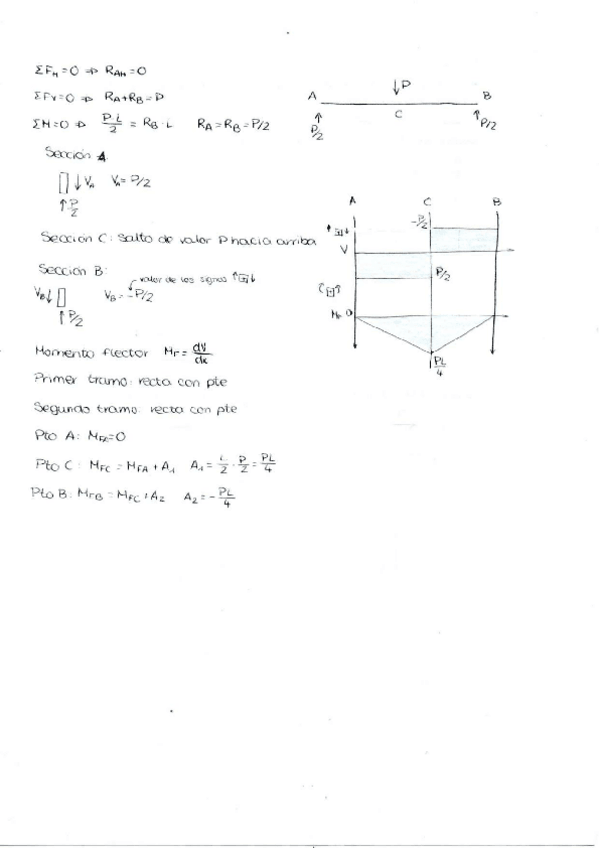 ΣF_H = 0 ⇒ R_AH = 0
ΣF_V = 0 ⇒ R_A + R_B = P
ΣM = 0 ⇒ P·L/2 = R_B · L   R_A = R_B = P/2
Sección A:
↓ V_A   V_A = P/2
↑ P/2
Sección C: Salto de valor P hacia arriba
Sección B:
valor de los signos ↑[+]↓
V_B ↓   V_B = -P/2
↑ P/2
Momento flector   M_F = dV/dx
Primer tramo: recta con pte
Segundo tramo: recta con pte
Pto A: M_FA = 0
Pto C: M_FC = M_FA + A_1   A_1 = L/2 · P/2 = PL/4
Pto B: M_FB = M_FC + A_2   A_2 = -PL/4
↓P
A   B
C
↑ P/2   ↑ P/2
A   C   B
-P/2
↑[+]↓
V
P/2
(↑[+]↑)
M_F   0
PL/4